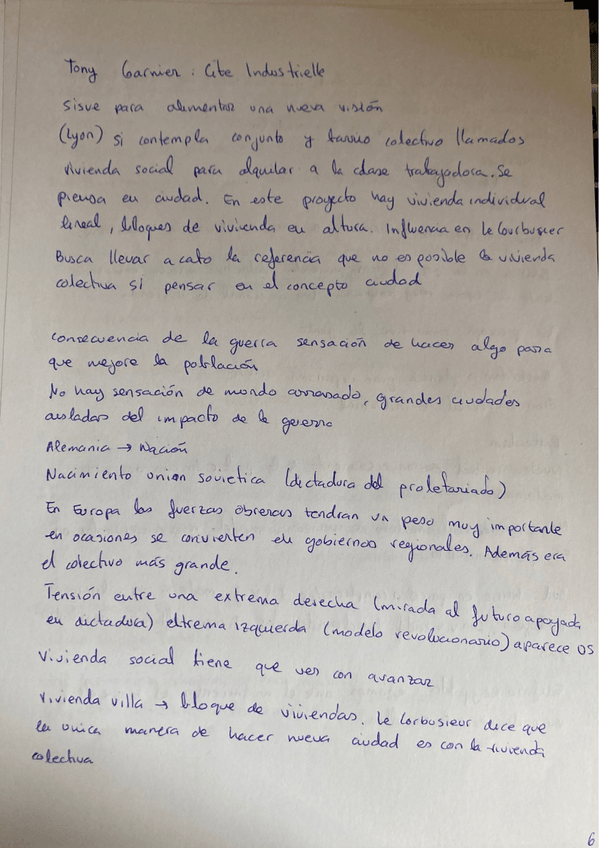 Tony Garnier: Cite Industrielle
Sisve para alimentar una nueva visión
(Lyon) si contempla conjunto y barrio colectivo llamados
vivienda social para alquilar a la clase trabajadora. Se
piensa en ciudad. En este proyecto hay vivienda individual
lineal, bloques de vivienda en altura. Influencia en Le Courbusier
Busca llevar a cabo la referencia que no es posible la vivienda
colectiva si pensar en el concepto ciudad
Consecuencia de la guerra sensación de hacer algo para
que mejore la población
No hay sensación de mundo arrasado, grandes ciudades
aisladas del impacto de la guerra
Alemania → Nación
Nacimiento union sovietica (dictadura del proletariado)
En Europa las fuerzas obreras tendran un peso muy importante
en ocasiones se convierten en gobiernos regionales. Además era
el colectivo más grande.
Tensión entre una extrema derecha (mirada al futuro apoyada
en dictadura) eltrema izquierda (modelo revolucionario) aparece OS
Vivienda social tiene que ver con avanzar
Vivienda villa → bloque de viviendas. Le Corbusieur dice que
la unica manera de hacer nueva ciudad es con la vivienda
colectiva
6